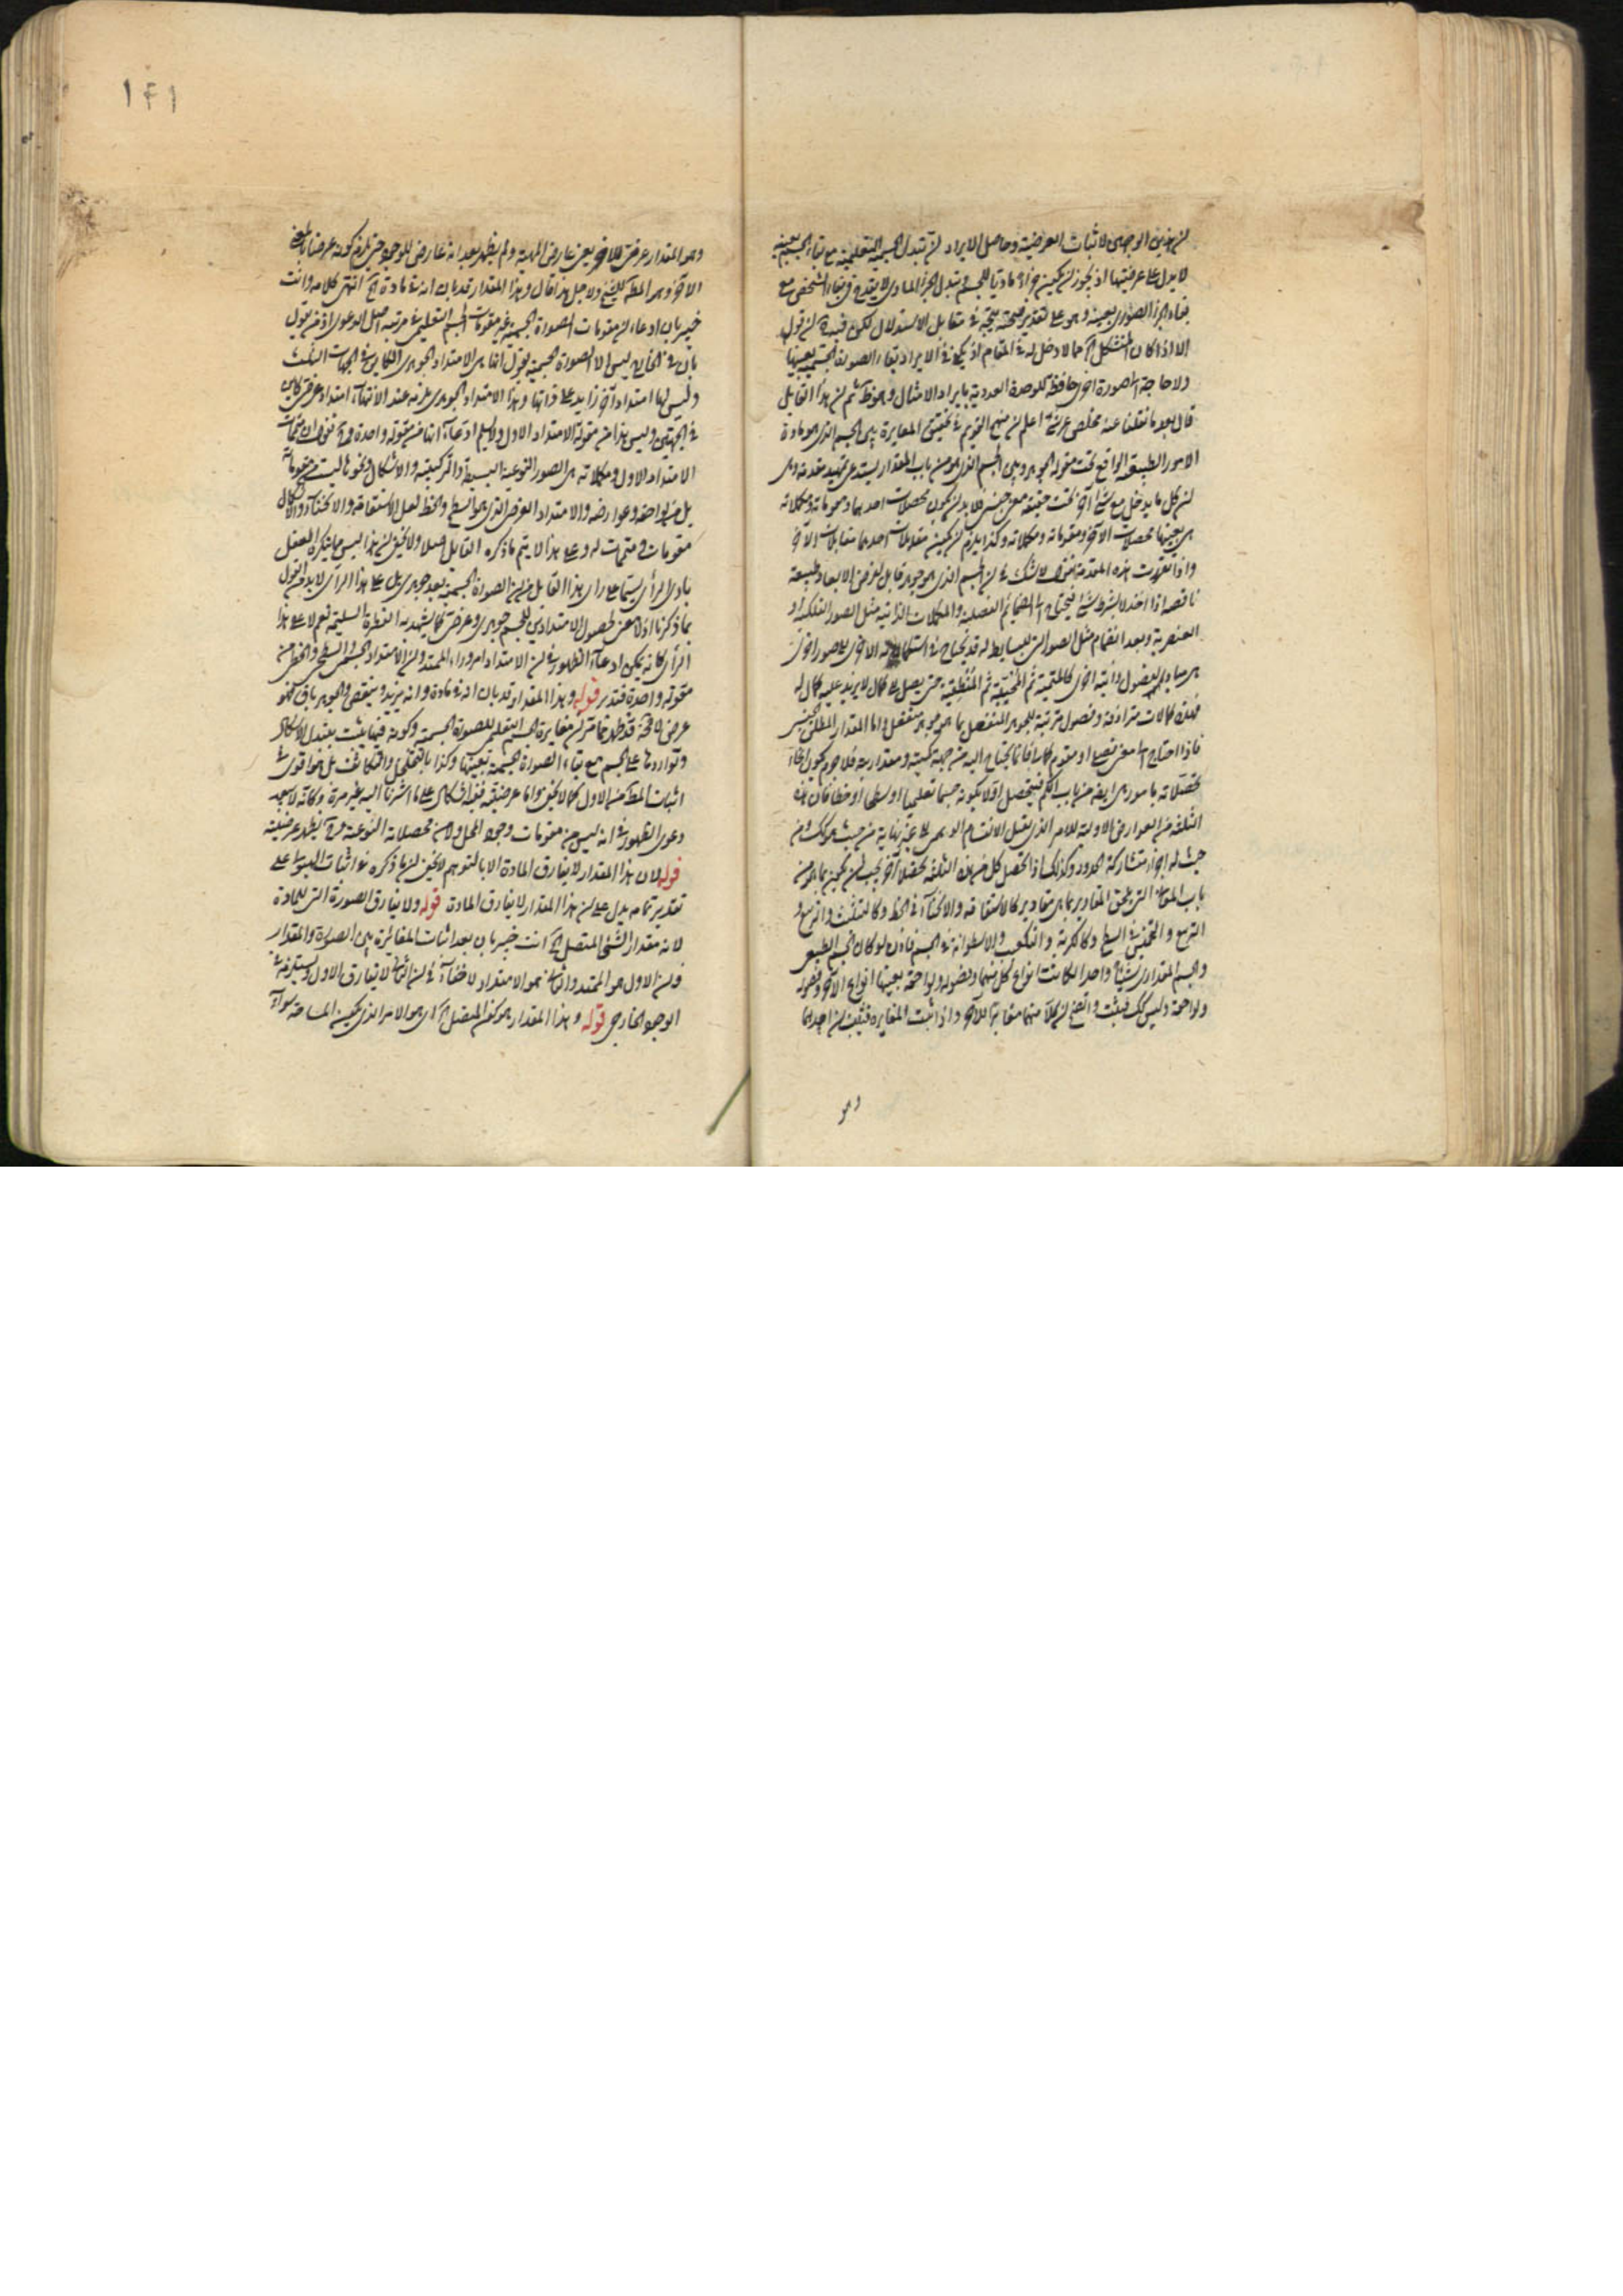 لايدل على عرضيتها اذ يجوز ان يكون جزءا ماديا للجسم وتبدل الجزء المادى لا يقدح فى بقاء الشخص مع
بقاء الجزء الصورى بعينه وهو على تقدير صحته يتجه فى مقابل الاستدلال لكن فيه ان تول
ولا حاجة الى صورة اخرى حافظة للوحدة العددية بايراد الامثال وهو ظ ثم ان هذا القايل
قال بعد ما نقلنا عنه اعلم ان المنهج القويم فى تحقيق المغايرة بين الجسم الذى هو مادة
الامور الطبيعية الواقع تحت مقولة الجوهر وبين الجسم الذى هو من باب المقدار يستدعى تمهيد مقدمة وهى
ان كل ما يدخل مع شئ آخر تحت حقيقة جنس فلابد ان يكون محصلات احدهما ومقوماته ومكملاته
هى بعينها محصلات الآخر ومقوماته ومكملاته وكذا يلزم ان يكون مقابلات احدهما مقابلات الآخر
واذا تمهدت هذه المقدمة فنقول لا شك فى ان الجسم الذى هو جوهر قابل لفرض الابعاد طبيعة
ناقصة اذا اخذ لا بشرط شئ فيحتاج الى الفصلية والمكملات الذاتية مثل الصور الفلكية او
العنصرية وبعد انضمام مثل الصور التى للبسايط له قد يحتاج فى استكماله الى صور اخرى
هى مبادى لفصول ذاتية اخرى ثم ثم حتى يصل الى كمال لا يزيد عليه كمال له
فهذه كمالات مترادفة وفصول مترتبة للجوهر المنفصل بما هو جوهر منفصل واما المقدار المطلق الجنس
فاذا احتاج الى معنى فصلى او مقوم كمالى فانما يحتاج اليه من جهة كميته ومقداريته فلا جرم يكون انحاء
تحصلاته بامور هى ايضا من باب الكم فيتحصل اولا بكونه جسما تعليميا او سطحا او خطا فان هذه
الثلثة من العوارض الاولية للامر الذى يقبل الانقسام الوهمى الى غير نهاية من حيث هو كك ومن
حيث له اجزاء متشاركة الحدود وكذلك اذا تحصل كل من هذه الثلثة تحصلا آخر يجب ان يكون بما هو من
باب المعانى التى تلحق المقادير بما هى مقادير كالاستقامة والانحناء فى الخط وكالتثليث و
التربيع و فى السطح وكالكرية والتكعب والاسطوانة فى الجسم فاذن لو كان الجسم الطبيعى
والجسم المقدارى شيئا واحدا لكانت انواع كل منهما وفصوله ولواحقه بعينها انواع الآخر وفصوله
ولواحقه وليس كك فثبت واتضح ان كلا منهما مغاير للآخر واذا ثبت المغايرة فثبت ان احدهما
وهو
١٤١
وهو المقدار عرض للآخر يعنى عارض المهية ولم يظهر بعد انه عارض للوجود حتى يلزم كونه عرضا بالمعنى
الآخر وهو المط للشيخ ولاجل هذا قال وهذا المقدار قد بان انه فى مادة الخ انتهى كلامه وانت
خبير بان ادعاء ان مقومات الصورة الجسمية غير مقومات الجسم التعليمى مرتبة اصل الدعوى اذ من يقول
بان فى الخارج ليس الا الصورة الجسمية يقول انما هى الامتداد الجوهرى الكاين فى الجهات الثلث
وليس لها امتداد آخر زايد على ذاتها وهذا الامتداد الجوهرى يلزمه عند الانتهاء امتداد عرضى كاين
فى الجهتين وليس هذا من مقولة الامتداد الاول ولا يسلم ادعاء انها من مقولة واحدة
الامتداد الاول ومكملاته هى الصور النوعية البسيطة والتركيبية والاشكال ونحوها ليست من مقوماته
بل من لواحقه وعوارضه والامتداد العرضى الذى هو السطح والخط لعل الاستقامة والانحناء والاشكال
مقومات ومتممات له وعلى هذا لا يتم ما ذكره القايل اصلا ولا يخفى ان هذا ليس مما ينكره العقل
بادى الراى سيما على راى هذا القايل من ان الصورة الجسمية بعد جوهرى بل على هذا الراى لابد من القول
بما ذكرنا اولا عن حصول الامتدادين للجسم جوهرى وعرضى كما يشهد به الفطرة السليمة نعم لا على هذا
الراى كانه يمكن ادعاء الظهور فى ان الامتداد امر وراء الممتد وان الامتداد الجسمى والسطحى والخطى من
مقولة واحدة فتدبر قوله وهذا المقدار قد بان انه فى مادة وانه يزيد وينقص والجوهر باق فهو
عرض لا محة قد ظهر مما مر ان مغايرة الجسم التعليمى للصورة الجسمية وكونه فيها يثبت بتبدل الاشكال
وتواردها على الجسم مع بقاء الصورة الجسمية بعينها وكذا بالتخلخل والتكاثف بل هو اقوى فى
اثبات المط من الاول كما لا يخفى واما عرضيته ففيه اشكال على ما اشرنا اليه غير مرة وكانه لا يبعد
دعوى الظهور فى انه ليس من مقومات وجود المحل ولا من محصلاته النوعية وح يظهر عرضيته
قوله لان هذا المقدار لا يفارق المادة الا بالتوهم لا يخفى ان ما ذكره فى اثبات الهيولى على
تقدير تمامه يدل على ان هذا المقدار لا يفارق المادة قوله ولا يفارق الصورة التى للمادة
لانه مقدار الشئ المتصل الخ انت خبير بان بعد اثبات المغايرة بين الصورة والمقدار
وان الاول هو الممتد والثانى هو الامتداد لا خفاء فى ان الثانى لا يفارق الاول ويستلزمه فى
الوجود الخارجى قوله وهذا المقدار هو كون المتصل الخ اى هو الامر الذى يكون المساحة سواء